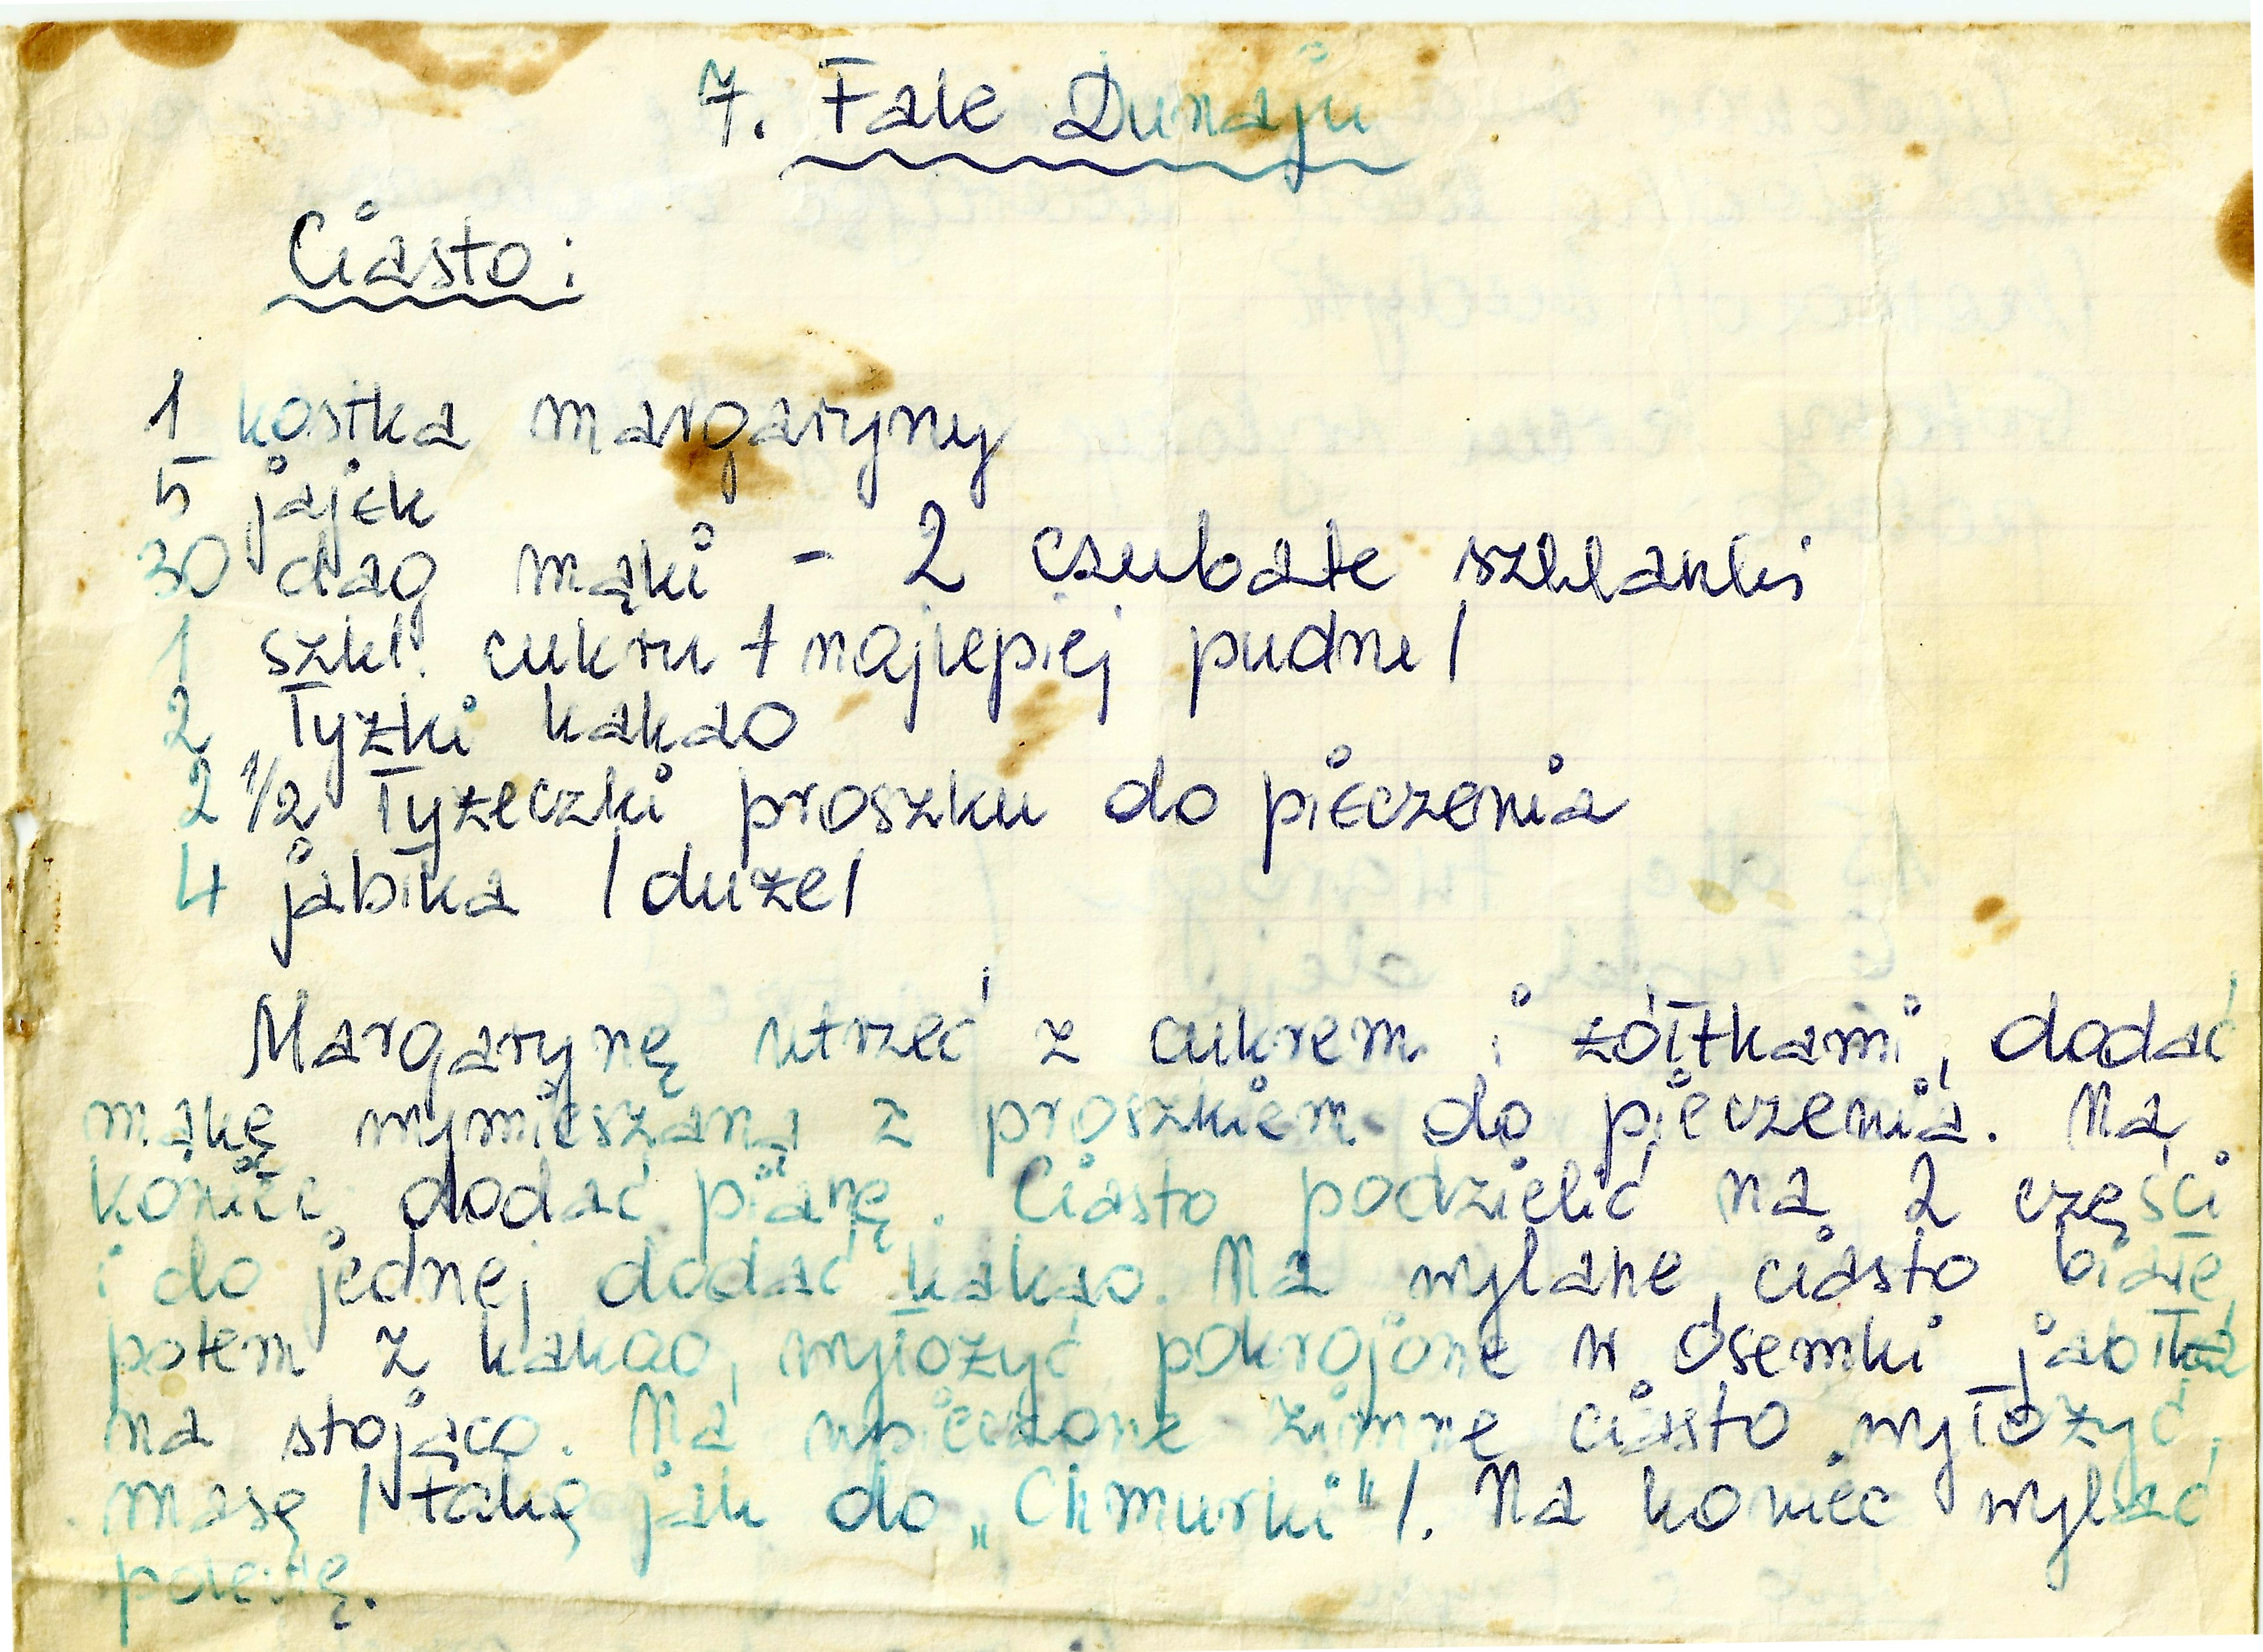 7. Fale Dunaju
Ciasto:
1 kostka margaryny
5 jajek
30 dag mąki - 2 czubate szklanki
1 szkl. cukru / najlepiej pudru /
2 łyżki kakao
2 1/2 łyżeczki proszku do pieczenia
4 jabłka / duże /
Margarynę utrzeć z cukrem i żółtkami, dodać
mąkę wymieszaną z proszkiem do pieczenia. Na
koniec dodać pianę. Ciasto podzielić na 2 części
i do jednej dodać kakao. Na wylane ciasto białe,
potem z kakao, wyłożyć pokrojone w ósemki jabłka
na stojąco. Na upieczone zimne ciasto wyłożyć
masę / taką jak do „Chmurki" /. Na koniec wylać
polewę.